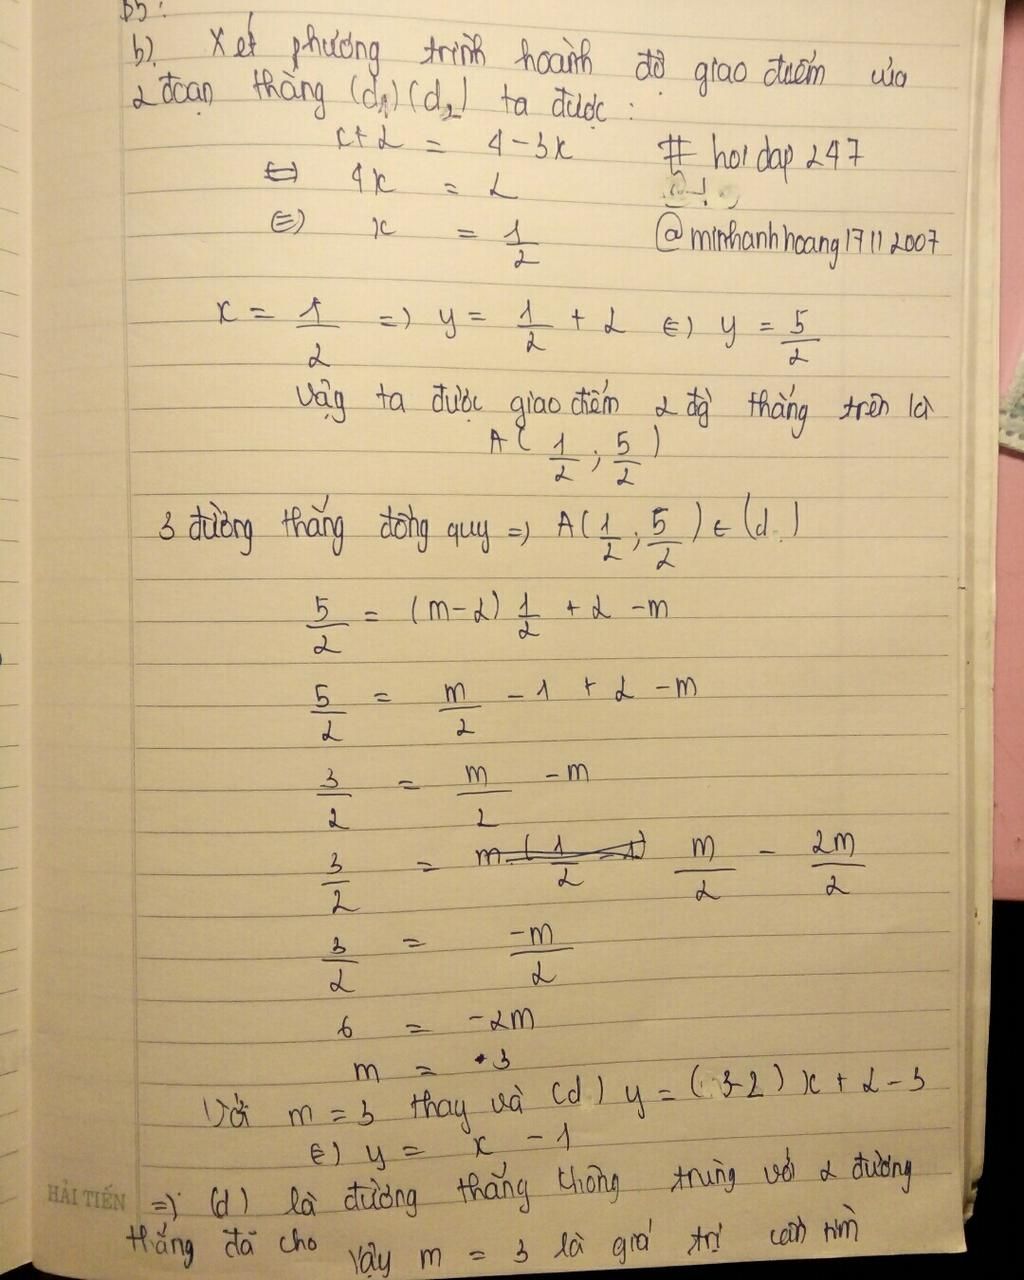 b). Xét phương trình hoành độ giao điểm của
2 đoạn thẳng (d₁) (d₂) ta được :
x + 2 = 4 - 3x # hoidap 247
<=> 4x = 2
<=> x = 1/2 @minhanhhoang17112007
x = 1/2 => y = 1/2 + 2 <=> y = 5/2
Vậy ta được giao điểm 2 đg thẳng trên là
A( 1/2 ; 5/2 )
3 đường thẳng đồng quy => A( 1/2 ; 5/2 ) ∈ (d )
5/2 = (m-2) 1/2 + 2 - m
5/2 = m/2 - 1 + 2 - m
3/2 = m/2 - m
3/2 = m/2 - 2m/2
3/2 = -m/2
6 = -2m
m = 3
Với m = 3 thay và (d ) y = ( 3-2 ) x + 2 - 3
<=> y = x - 1
=> (d ) là đường thẳng không trùng với 2 đường
HẢI TIẾN
thẳng đã cho Vậy m = 3 là giá trị cần tìm